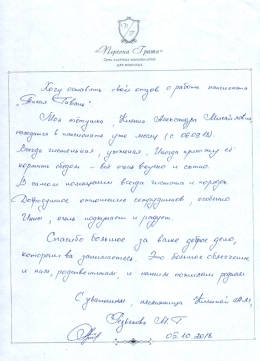 «Персона Грата»
Сеть частных пансионатов
для пожилых
Хочу оставить свой отзыв о работе пансионата
"Тихая Гавань".
Моя тётушка Александра
находится в пансионате уже месяц (с
Всегда ухоженная. Иногда прихожу её
кормить обедом - всё очень вкусно и сытно.
В самом помещении всегда чистота и порядок.
Дофодушное отношение сотрудников, особенно
очень подкупает и радует.
Спасибо большое за ваше доброе дело,
которым вы занимаетесь. Это большое облегчение
и нам, родственникам, и нашим пожилым родным.
С уважением, племянница
М.Г.
05.10.2018